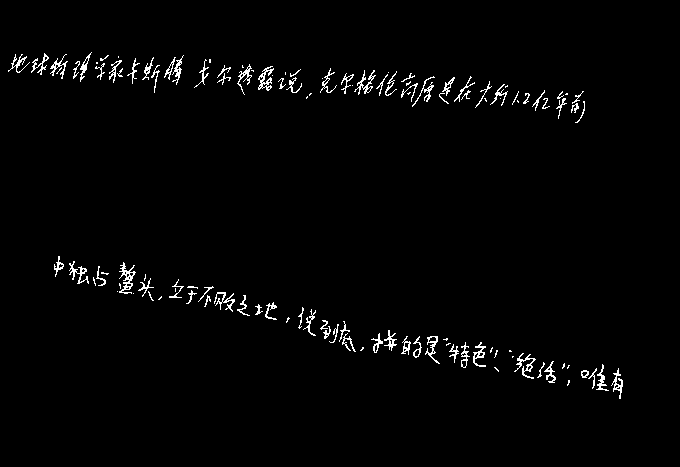 地球物理学家卡斯腾 戈尔透露说，克尔格伦高原是在大约1.2亿年前
中独占鳌头，立于不败之地，说到底，拼的是“特色”、“绝活”，唯有